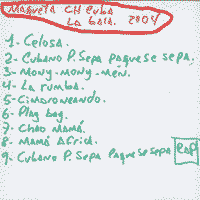 Maqueta CH Cuba
La Gaia. 2004
1- Celosa.
2- Cubano P. Sepa paquese sepa.
3- Mony-mony-men.
4- La rumba.
5- Cimaroneando.
6- Play bag.
7- Chao Mamá.
8- Mamá Africa.
9- Cubano P. Sepa Paquese sepa
rap